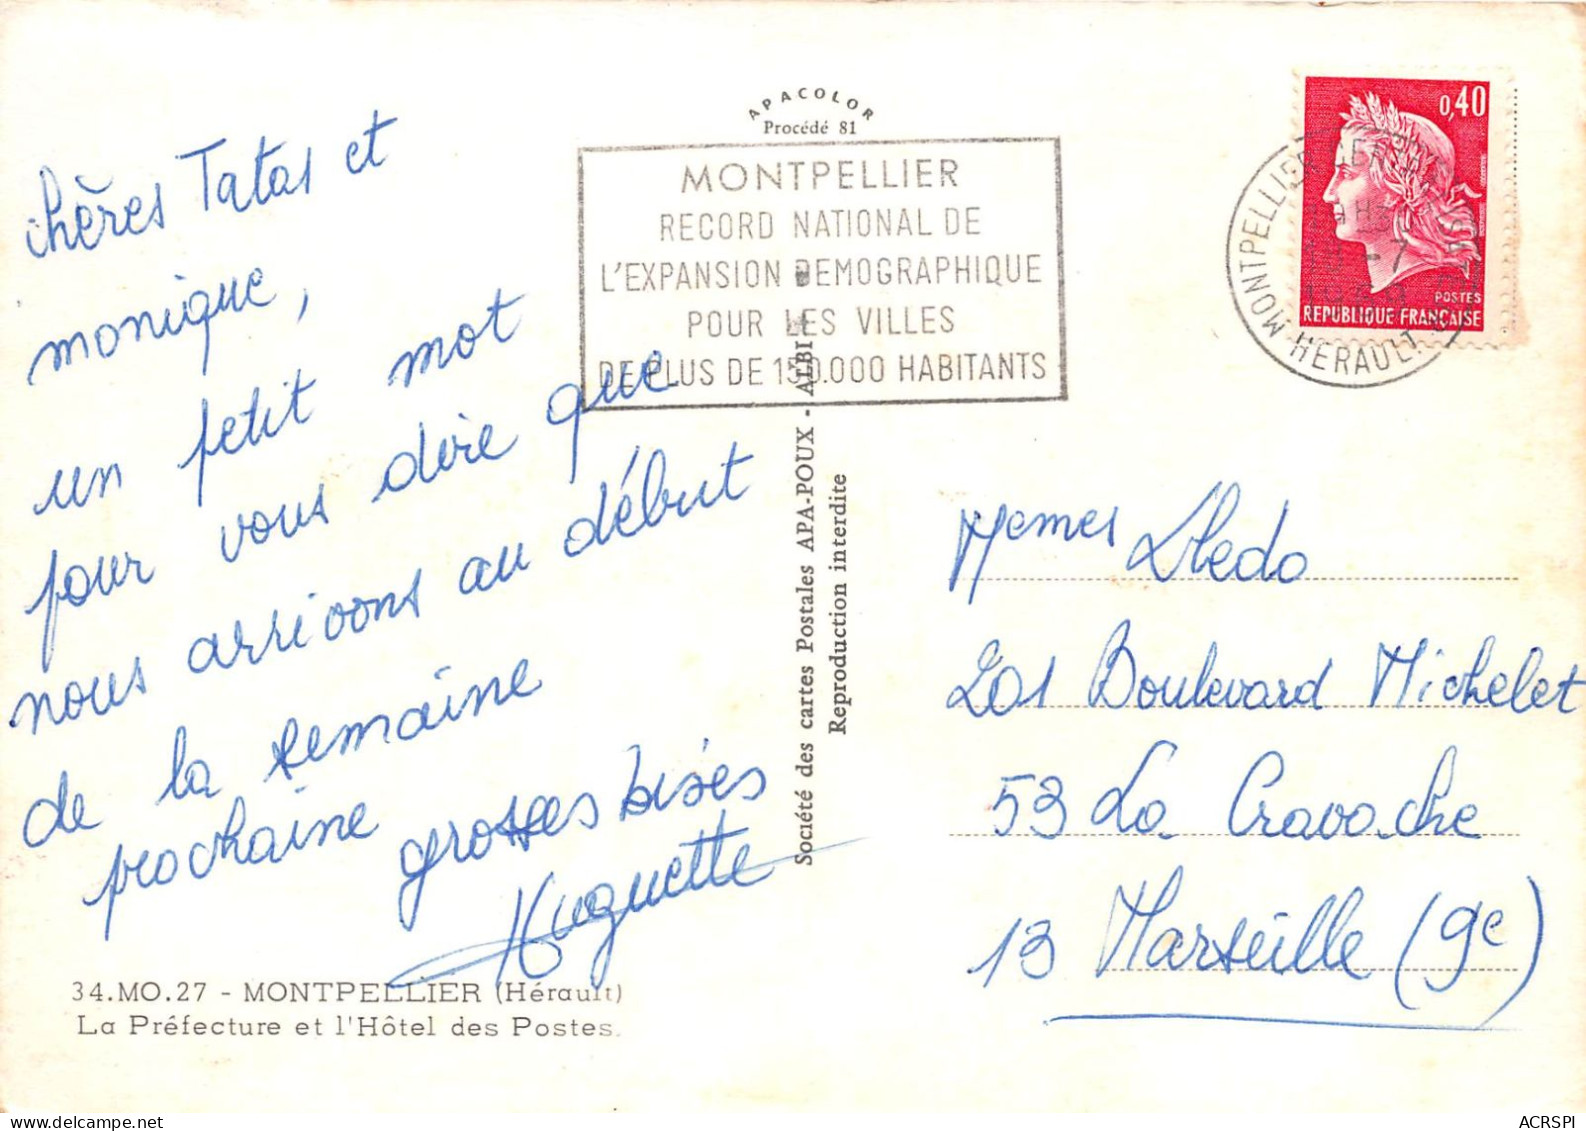 APACOLOR
Procédé 81
MONTPELLIER
RECORD NATIONAL DE
L'EXPANSION DEMOGRAPHIQUE
POUR LES VILLES
DE PLUS DE 150.000 HABITANTS
0,40
POSTES
REPUBLIQUE FRANÇAISE
MONTPELLIER
HERAULT
chères Tatas et
monique,
un petit mot
pour vous dire que
nous arrivons au début
de la semaine
prochaine
grosses bises
Huguette
Société des cartes Postales APA-POUX - ALBI
Reproduction interdite
Memes Lledo
201 Boulevard Michelet
53 La Cravache
13 Marseille (9e)
34.MO.27 - MONTPELLIER (Hérault)
La Préfecture et l'Hôtel des Postes.
ACRSPI